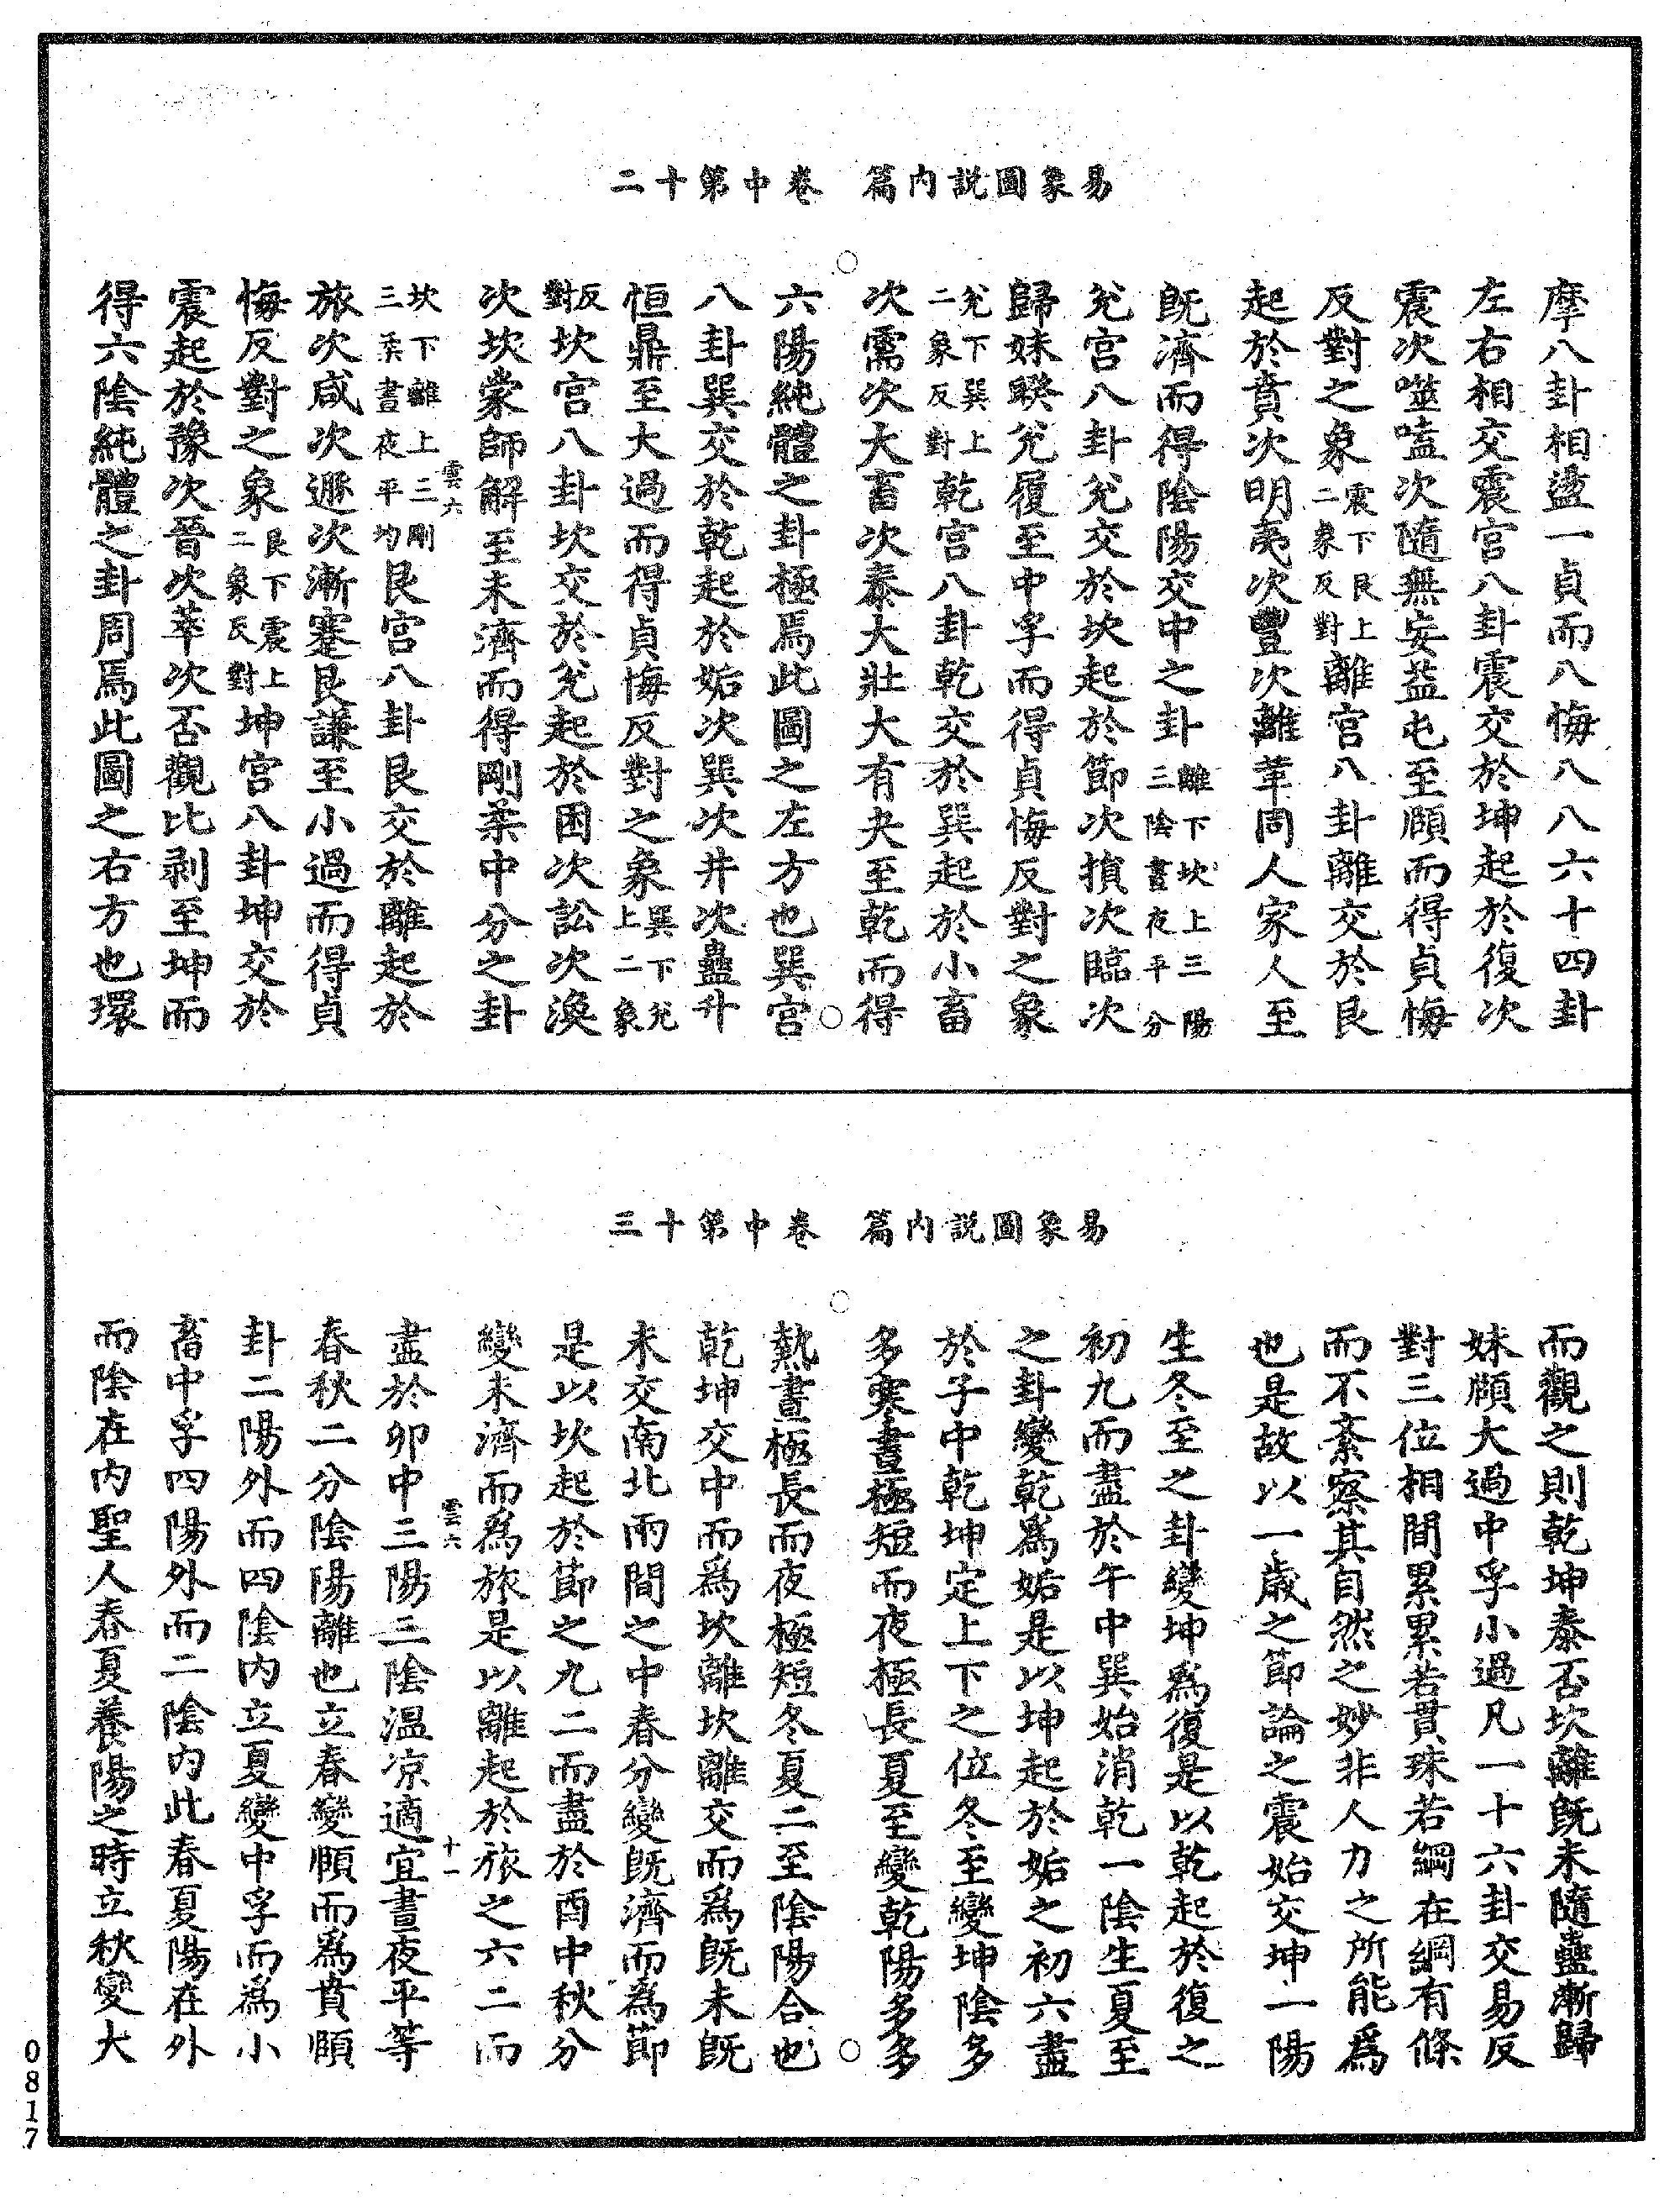 易象圖說內篇 卷中第十二
摩八卦相盪一貞而八悔八八六十四卦
左右相交震宮八卦震交於坤起於復次
震次噬嗑次隨無妄益屯至頤而得貞悔
反對之象震下艮上二象反對離宮八卦離交於艮
起於賁次明夷次豐次離革同人家人至
既濟而得陰陽交中之卦離下坎上三陽三陰晝夜平分
兌宮八卦兌交於坎起於節次損次臨次
歸妹睽兌履至中孚而得貞悔反對之象
兌下巽上二象反對乾宮八卦乾交於巽起於小畜
次需次大畜次泰大壯大有夬至乾而得
六陽純體之卦極焉此圖之左方也巽宮
八卦巽交於乾起於姤次巽次井次蠱升
恒鼎至大過而得貞悔反對之象巽下兌上二象
反對坎宮八卦坎交於兌起於困次訟次渙
次坎蒙師解至未濟而得剛柔中分之卦
雲六
坎下離上三剛三柔晝夜平均艮宮八卦艮交於離起於
旅次咸次遯次漸蹇艮謙至小過而得貞
悔反對之象艮下震上二象反對坤宮八卦坤交於
震起於豫次晉次萃次否觀比剥至坤而
得六陰純體之卦周焉此圖之右方也環
易象圖說內篇 卷中第十三
而觀之則乾坤泰否坎離既未隨蠱漸歸
妹頤大過中孚小過凡一十六卦交易反
對三位相間累累若貫珠若綱在綱有條
而不紊察其自然之妙非人力之所能為
也是故以一歲之節論之震始交坤一陽
生冬至之卦變坤為復是以乾起於復之
初九而盡於午中巽始消乾一陰生夏至
之卦變乾為姤是以坤起於姤之初六盡
於子中乾坤定上下之位冬至變坤陰多
多寒晝極短而夜極長夏至變乾陽多多
熱晝極長而夜極短冬夏二至陰陽合也
乾坤交中而為坎離坎離交而為既未既
未交南北兩間之中春分變既濟而為節
是以坎起於節之九二而盡於酉中秋分
變未濟而為旅是以離起於旅之六二而
雲六 十一
盡於卯中三陽三陰温凉適宜晝夜平等
春秋二分陰陽離也立春變頤而為賁頤
卦二陽外而四陰內立夏變中孚而為小
畜中孚四陽外而二陰內此春夏陽在外
而陰在內聖人春夏養陽之時立秋變大
0817